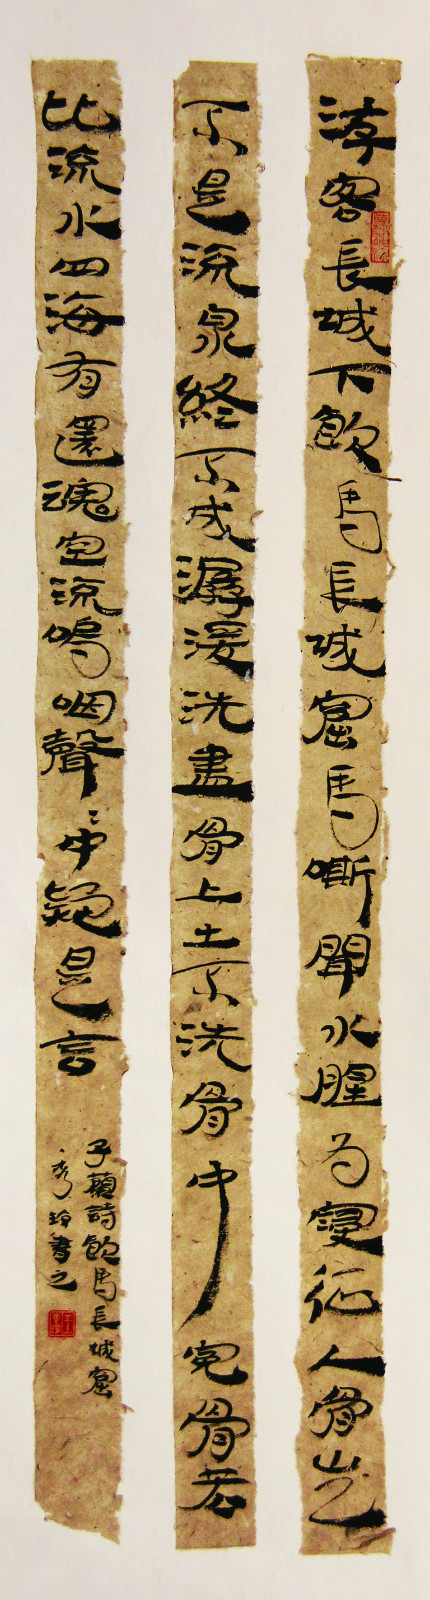 游客長城下飲馬長城窟馬嘶聞水腥为寖征人骨豈
不是流泉終不成潺湲洗盡骨上土不洗骨中冤骨若
比流水四海有還魂空流嗚咽聲〻中疑是言
子蘭詩飲馬長城窟
秀書之